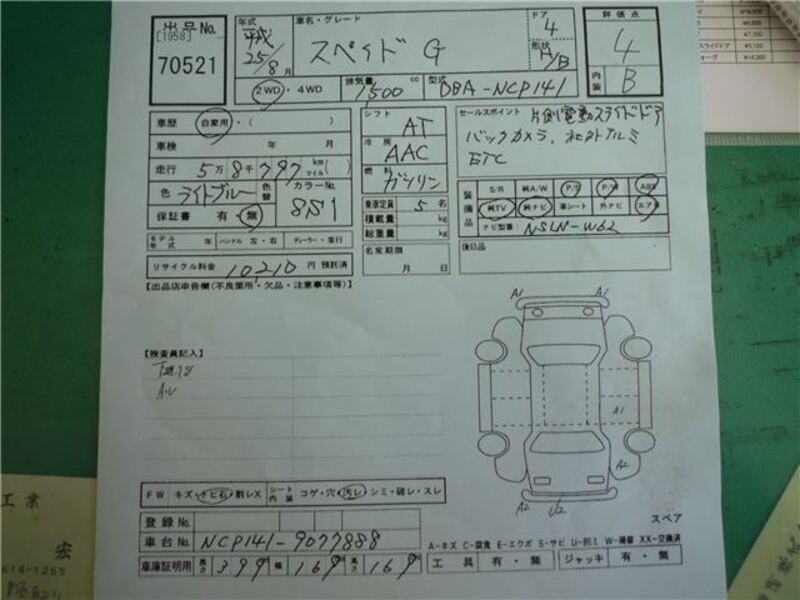 出品No.
[1958]
70521
年式
平成
25/8月
車名・グレード
スペイド G
ドア
4
形状
H/B
評価点
4
内装 B
2WD・4WD
排気量 1500 cc
型式 DBA-NCP141
車歴 自家用・( )
車検 年 月
走行 5万8千797 km マイル( )
色 ライトブルー 色替
カラーNo. 8S1
保証書 有・無
モデル年式 年 ハンドル 左・右 ディーラー・並行
リサイクル料金 10,210 円 預託済
シフト AT
冷房 AAC
燃料 ガソリン
乗車定員 5 名
積載量 kg
総重量 kg
名変期限
月 日
セールスポイント 片側電動スライドドア
バックカメラ、社外アルミ
ETC
装備品
S/R 純A/W P/S P/W ABS
純TV 純ナビ 革シート 外ナビ エアB
ナビ型番: NSLN-W62
後日品
[出品店申告欄(不良箇所・欠品・注意事項等)]
【検査員記入】
A1 A1
A1
A2
A2 U2
スペア
FW キズ・トビ石・割レX シート内装 コゲ・穴・汚レ・シミ・破レ・スレ
登録No.
車台No. NCP141-9077888
車庫証明用 長さ 399 幅 169 高さ 169
A-キズ C-腐食 E-エクボ S-サビ U-凹ミ W-補修 XX-交換済
工具 有・無 ジャッキ 有・無
工業
宏
614-1265
スライドドア